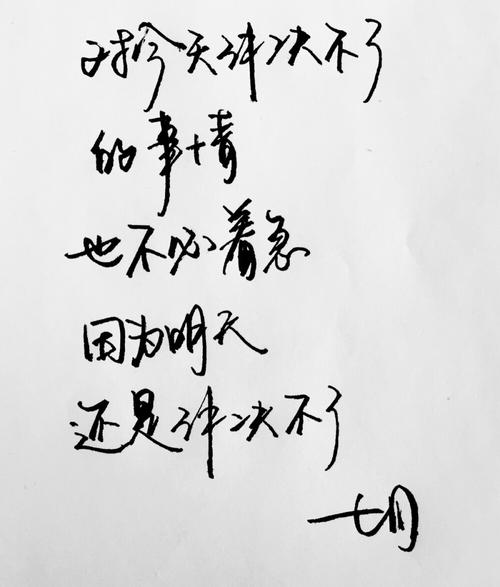 对于今天解决不了
的事情
也不必着急
因为明天
还是解决不了
七月